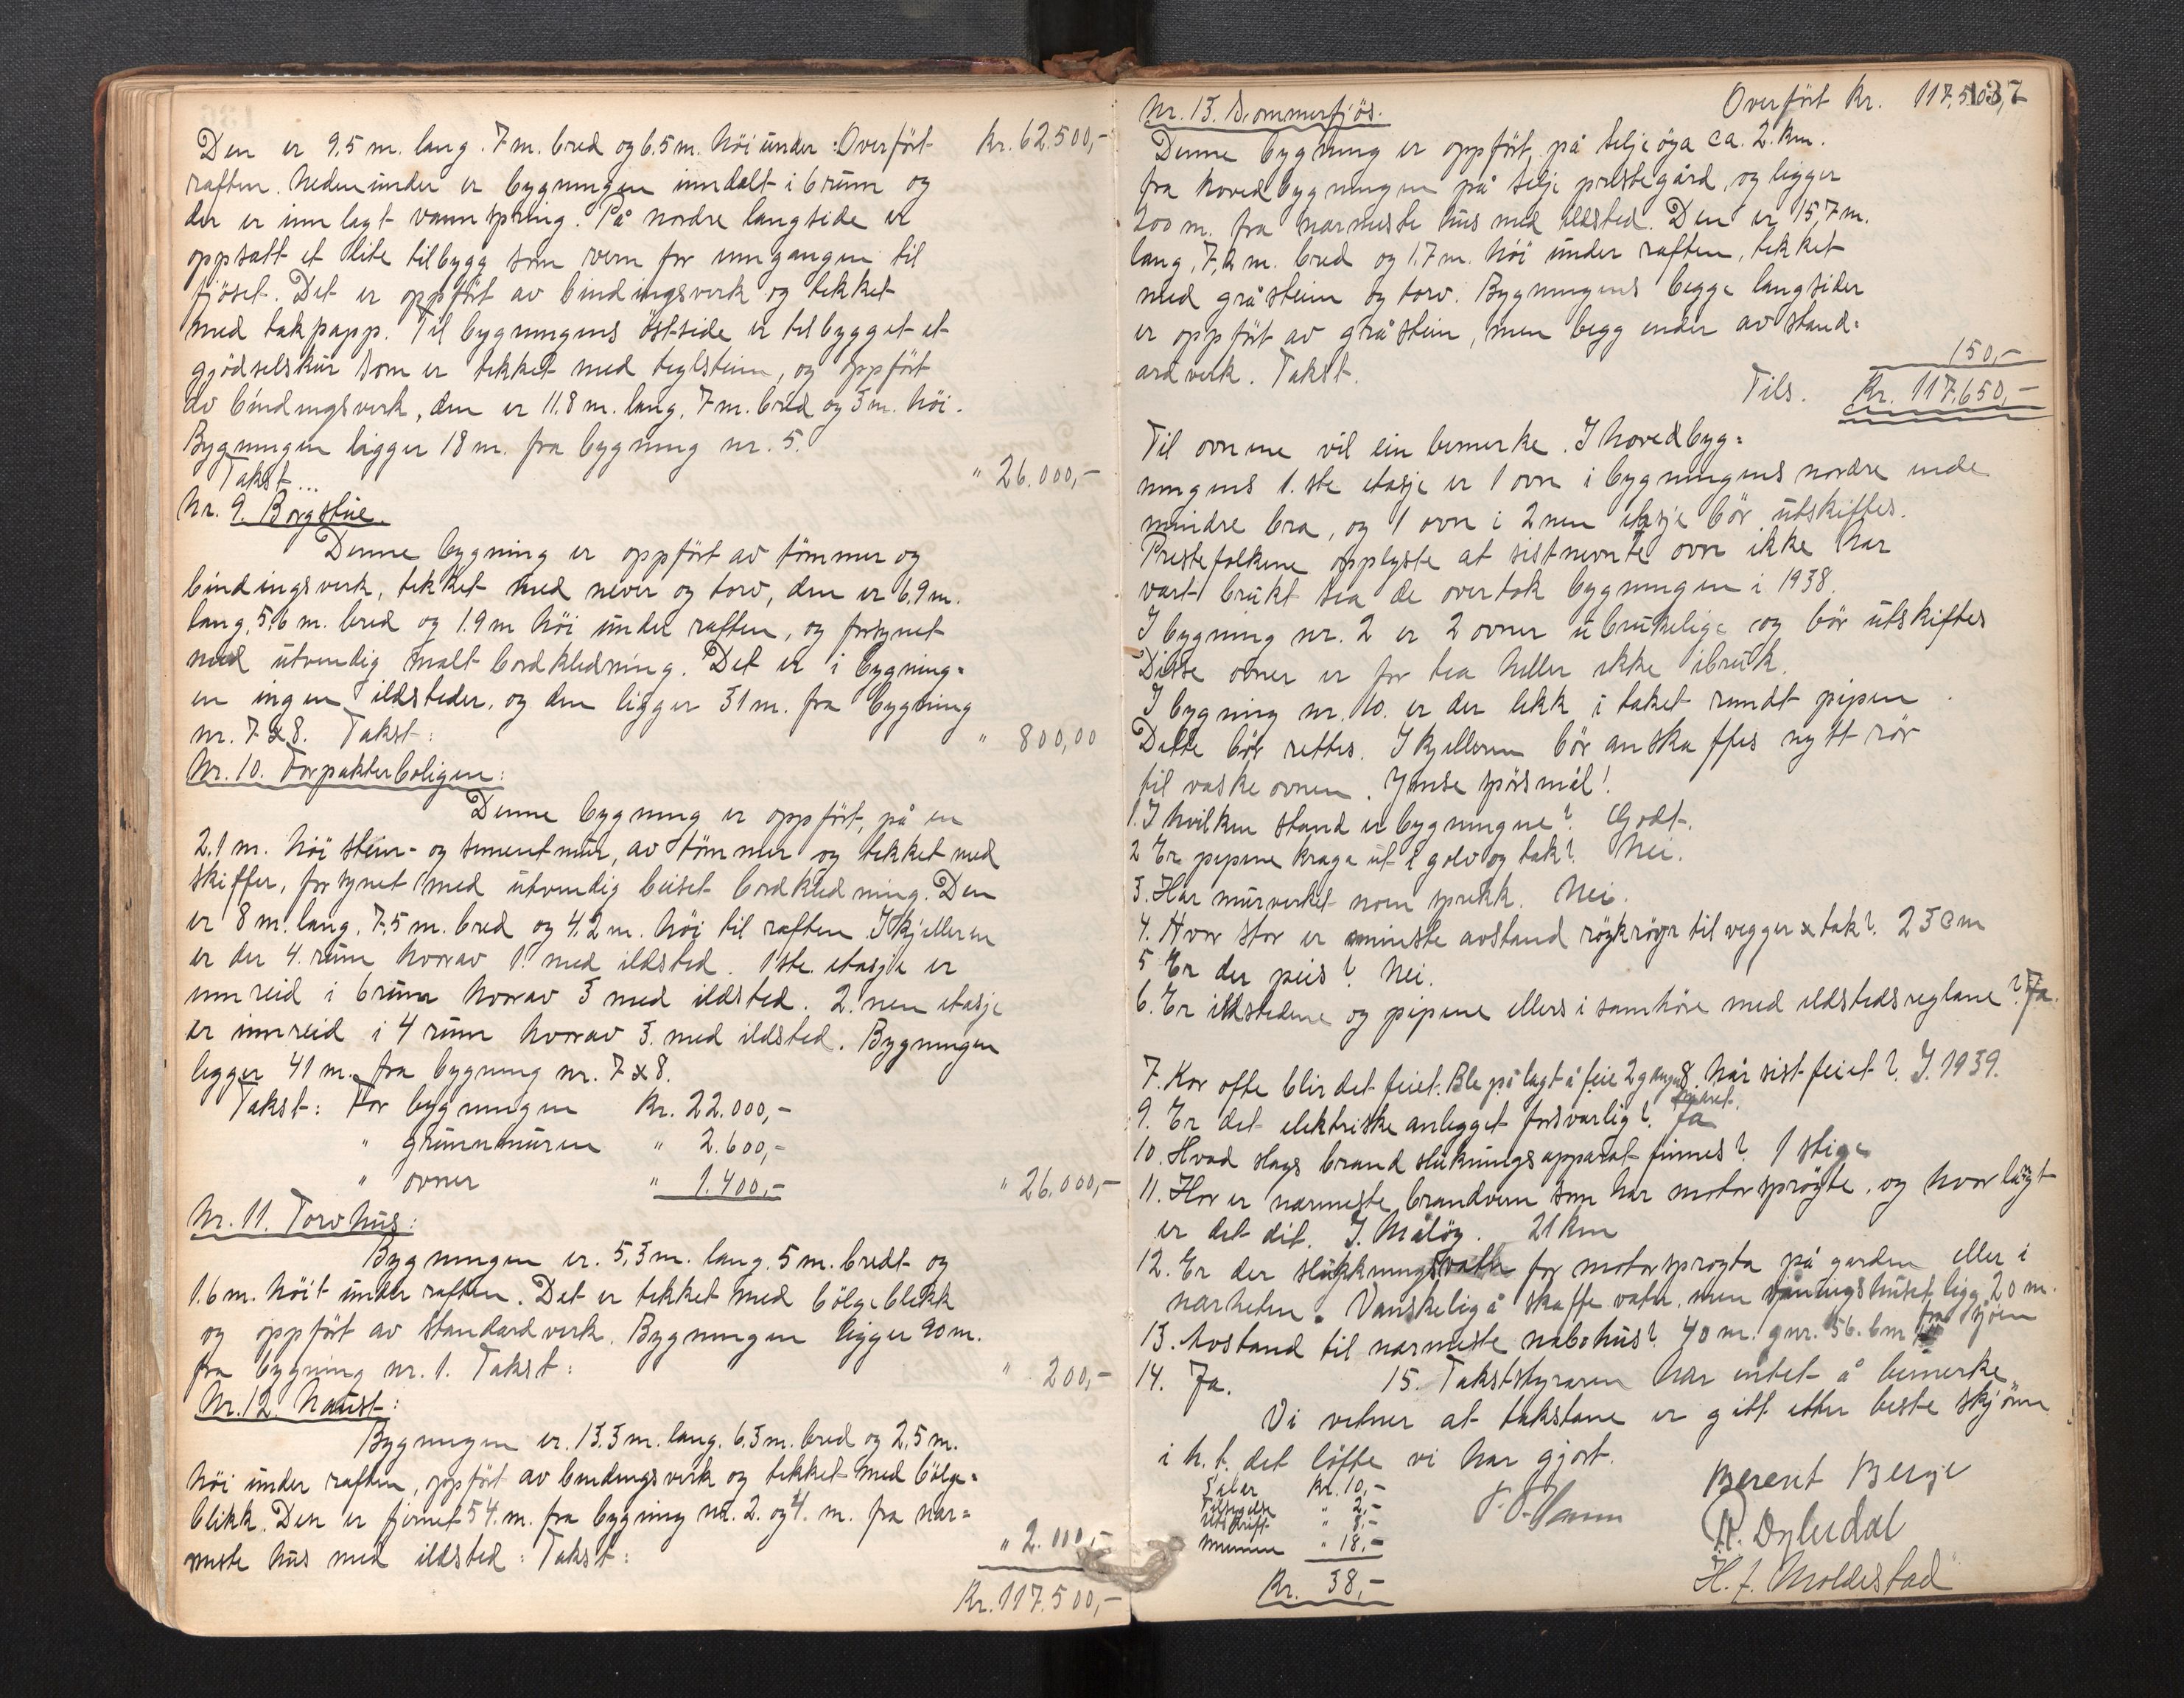 Den er 9.5 m. lang. 7 m. bred og 6.5 m. höi under : Overfört kr. 62.500,-
raften. Nedenunder er bygningen inndelt i 6 rum og
der er innlagt vannspring. På nordre langside er
oppsatt et lite tilbygg som vern for inngangen til
fjöset. Det er oppfört av bindingsverk og tekket
med takpapp. Til bygningens östside er tilbygget et
gjödselskur som er tekket med teglstein, og oppfört
av bindingsverk, den er 11.8 m. lang, 7 m. bred og 3 m. höi.
Bygningen ligger 18 m. fra bygning nr. 5.
Takst ... " 26.000,-
Nr. 9. Borgstue.
Denne bygning er oppfört av tömmer og
bindingsverk, tekket med never og torv, den er 6.9 m.
lang, 5.6 m. bred og 1.9 m höi under raften, og forsynet
med utvendig malt bordkledning. Det er i bygning=
en ingen ildsteder, og den ligger 31 m. fra bygning
nr. 7 & 8. Takst : " 800,00
Nr. 10. Forpakterboligen :
Denne bygning er oppfört, på en
2.1 m. höi stein- og sementmur, av tömmer og tekket med
skiffer, forsynet med utvendig beiset bordkledning. Den
er 8 m. lang, 7.5 m. bred og 4.2 m. höi til raften. I kjelleren
er der 4. rum hvorav 1. med ildsted. 1ste. etasje er
innreid i 6 rum hvorav 3 med ildsted. 2.nen etasje
er innreid i 4 rum hvorav 3. med ildsted. Bygningen
ligger 41 m. fra bygning nr. 7 & 8.
Takst : For bygningen Kr. 22.000,-
" grunnmuren " 2.600,-
" ovner " 1.400,- " 26.000,-
Nr. 11. Torvhus :
Bygningen er. 5,3 m. lang. 5 m. bredt og
1.6 m. höit under raften. Det er tekket med bölgeblikk
og oppfört av standardverk. Bygningen ligger 90 m.
fra bygning nr. 1. Takst : " 200,-
Nr. 12. Naust :
Bygningen er. 13.3 m. lang. 6.3 m. bred og 2.5 m.
höi under raften, oppfört av bindingsverk og tekket med bölge=
blikk. Den er fjernet 54. m. fra bygning nr. 2. og 4. m. fra nær=
meste hus med ildsted : Takst : " 2.000,-
Kr. 117.500,-
137
Nr. 13. Sommerfjös. Overfört Kr. 117.500,-
Denne bygning er oppfört, på Seljeöya ca. 2. km.
fra hovedbygningen på Selje prestegård, og ligger
200 m. fra nærmeste hus med ildsted. Den er 15,7 m.
lang, 7,2 m. bred og 1.7 m. höi under raften, tekket
med gråstein og torv. Bygningens begge langsider
er oppfört av gråstein, men begg ender av stand=
ardverk. Takst. 150,-
Tils. Kr. 117.650,-
Til ovnene vil ein bemerke. I hovedbyg=
ningens 1.ste etasje er 1 ovn i bygningens nordre ende
mindre bra, og 1 ovn i 2nen etasje bör utskiftes.
Prestefolkene opplyste at sistnevnte ovn ikke har
vært brukt sia de overtok bygningen i 1938.
I bygning nr. 2 er 2 ovner ubrukelige og bör utskiftes
Disse ovner er for tia heller ikke ibruk.
I bygning nr. 10. er der lekk i taket rundt pipen.
Dette bör rettes. I kjelleren bör anskaffes nytt rör
til vaskeovnen. Ymse spörsmål!
1. I hvilken stand er bygningne? Godt.
2 Er pipene kraga ut i golv og tak? Nei.
3. Har murverket noen sprekk. Nei.
4. Hvor stor er minste avstand röykröyr til vegger & tak? 23 cm
5 Er der peis? Nei.
6. Er ildstedene og pipene ellers i samhöve med ildstedsreglane? Ja.
7. Kor ofte blir det feiet. Ble pålagt å feie 2 ganger 8. Når sist feiet? I. 1939.
i året.
9. Er det elektriske anlegget forsvarlig? Ja
10. Hvad slags brandslukningsapparat finnes? 1 stige
11. Hor er nærmeste brandvern som har motorspröyte, og hvor langt
er det dit. I. Målöy. 21 km
12. Er der slukkningsvatn for motorspröyta på garden eller i
nærheten. Vanskelig å skaffe vatn, men våningshuset ligg 20 m.
fra sjöen
13. Avstand til nærmeste nabohus? 40 m. gnr. 56. bnr
14. Ja. 15. Takststyraren har intet å bemerke.
Vi vitner at takstane er gitt etter beste skjönn
i h. t. det löfte vi har gjort.
Salær Kr. 10,-
Tilsigelse " 2,-
Utskrift " 8,-
Mennene " 18,-
Kr. 38,-
Berent Berge
H. f. Moldestad